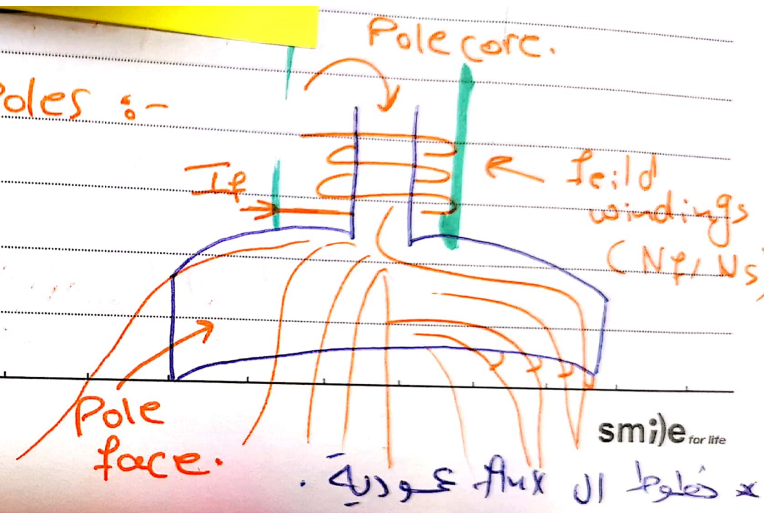 Pole core.
Poles :-
If
feild
windings
(Nf, Ns)
Pole
face.
smile for life
* خطوط ال flux عمودية .